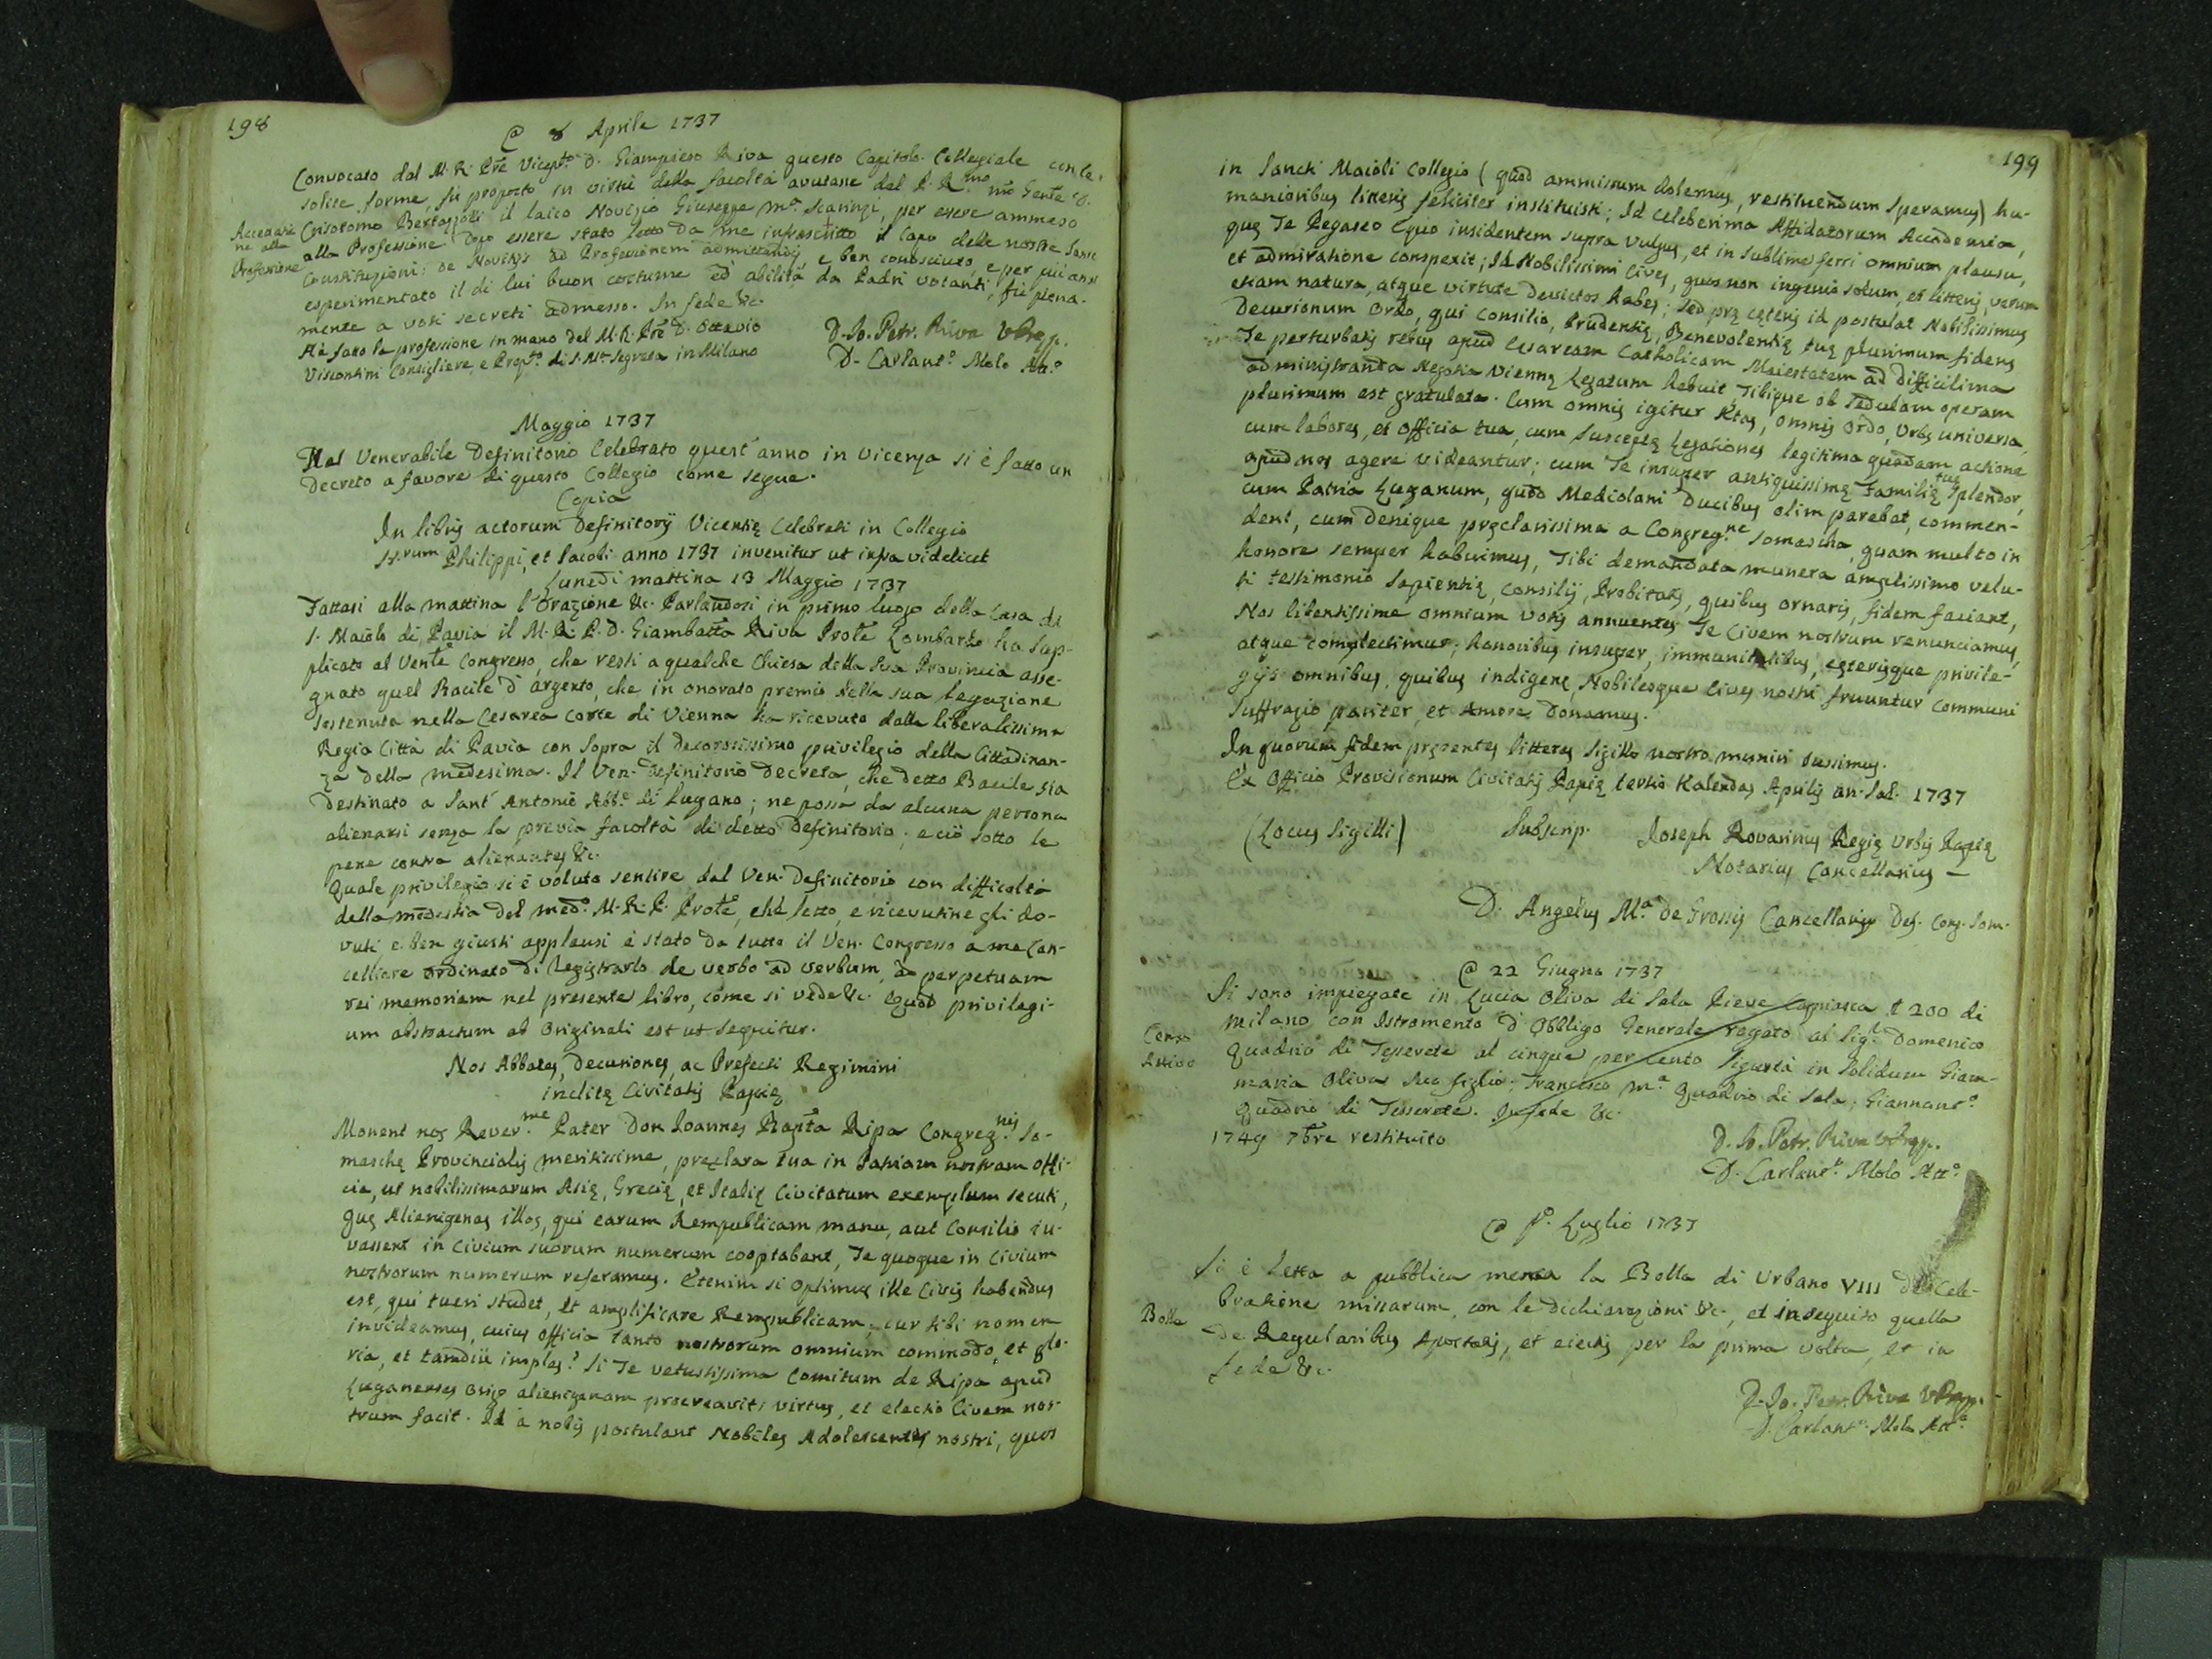 198
@ 8 Aprile 1737
Convocato dal M. R. Pre Vicepto D. Giampiero Riva questo Capitolo Collegiale con le
solite forme, fù proposto in virtù della facoltà avutane dal P. Rmo nro Genle D.
Crisostomo Bertazzoli il laico Novizio Giuseppe Ma. Scaringi, per essere ammesso
Accettazio
ne alla
Professione
alla Professione dopo essere stato letto da me infrascritto il Capo delle nostre Sante
Constituzioni: de Novitijs ad Professionem admittendis, e ben conosciuto, e per più anni
esperimentato il di lui buon costume ed abilità da Padri votanti, fù piena-
mente a voti secreti admesso. In fede &c.
Hà fatto la professione in mano del M. R. Pre D. Ottavio
Viscontini Consigliere, e Propto di S. Ma Segreta in Milano
D. Io. Petr. Riva VPrep.
D. Carlanto. Molo Atto.
Maggio 1737
Nel Venerabile Definitorio Celebrato quest' anno in Vicenza si è fatto un
decreto a favore di questo Collegio come segue.
Copia
In libris actorum Definitorij Vicentię Celebrati in Collegio
SS.rum Philippi, et Iacobi anno 1737 invenitur ut infra videlicet
Lunedi mattina 13 Maggio 1737
Fattasi alla mattina l'Orazione &c. Parlandosi in primo luogo della Casa di
S. Maiolo di Pavia il M. R. P. D. Giambatta Riva Prole Lombardo ha sup-
plicato al Venle Congresso, che resti a qualche Chiesa della sua Provincia asse-
gnato quel Bacile d'argento, che in onorato premio della sua legazione
sostenuta nella Cesarea Corte di Vienna ha ricevuto dalla liberalissima
Regia Città di Pavia con sopra il decorosissimo privilegio della Cittadinan-
za della medesima. Il Ven. Definitorio decreta, che detto Bacile sia
destinato a Sant' Antonio Abbe. di Lugano; ne possa da alcuna persona
alienarsi senza la previa facoltà di detto Definitorio; e ciò sotto le
pene contra alienantes &c.
Quale privilegio si è voluto sentire dal Ven. Definitorio con difficoltà
della modestia del medo. M. R. P. Prole, ehd letto, e ricevutine gli do-
vuti e ben giusti applausi è stato da tutto il Ven. Congresso a me Can-
celliere ordinato di Registrarlo de verbo ad verbum, ad perpetuam
rei memoriam nel presente libro, come si vede &c. Quod privilegi-
um abstractum ab Originali est ut sequitur.
Nos Abbates, Decuriones, ac Prefecti Regimini
inclitę Civitatis Papię
Monent nos Rever.me Pater Don Ioannes Bapta Ripa Congreg.nis So-
maschę Provincialis meritissime, preclara tua in Patriam nostram offi-
cia, ut nobilissimarum Asię, Grecię, et Italię Civitatum exemplum secuti,
quę Alienigenas illos, qui earum Rempublicam manu, aut Consilio iu-
vassent in Civium suorum numerum cooptabant, Te quoque in Civium
nostrorum numerum referamus. Etenim si Optimus ille Civis habendus
est, qui tueri studet, et amplificare Rempublicam; cur tibi nomen
invideamus, cuius officia tanto nostrorum omnium commodo, et glo-
ria, et tamdiu imples? Si Te vetustissima Comitum de Ripa apud
Luganenses Origo alienigenam procreavit, virtus, et electio Civem nos-
trum facit. Id a nobis postulant Nobiles Adolescentes nostri, quos
199
in Sancti Maioli Collegio (quod ammissum dolemus, restituendum speramus) hu-
manioribus litteris feliciter instituisti; Id Celeberrima Affidatorum Accademia,
quę Te Pegaseo Equo insidentem supra vulgus, et in sublime ferri omnium plausu,
et admiratione conspexit; Id Nobilissimi Cives, quos non ingenio solum, et litteris, verum
etiam natura, atque virtute devictos habes; Sed prę cęteris id postulat Nobilissimus
Decurionum Ordo, qui Consilio, Prudentię, Benevolentię tuę plurimum fidens
Te perturbatis rebus apud Cesaream Catholicam Maiestatem ad difficilima
administranda Negotia Viennę Legatum habuit, Tibique ob sedulam operam
plurimum est gratulata. Cum omnis igitur Ętas, omnis Ordo, Urbs universa,
cum labores, et Officia tua, cum susceptę Legationes legitima quadam actione
apud nos agere videantur; cum Te insuper antiquissimę Familię tuę splendor,
cum Patria Luganum, quod Mediolani Ducibus olim parebat, commen-
dent, cum denique pręclarissima a Congreg.ne Somascha, quam multo in
honore semper habuimus, Tibi demandata munera amplissimo velu-
ti testimonio Sapientię, Consilij, Probitatis, quibus ornaris, fidem faciant,
Nos libentissime omnium votis annuentes Te Civem nostrum renunciamus,
atque complectimur, honoribus insuper, immunitatibus, ceterisque privile-
gijs omnibus, quibus indigenę Nobilesque Cives nostri fruuntur communi
suffragio pariter, et Amore donamus.
In quorum fidem pręsentes litteras Sigillo nostro muniri iussimus.
Ex Officio Provisionum Civitatis Papię tertio Kalendas Aprilis an. Sal. 1737
(Locus Sigilli)
Subscrip. Ioseph Rovarinus Regię Urbis Papię
Notarius Cancellarius
D. Angelus Ma. de Grossis Cancellarius Def. Cong. Som.
@ 22 Giugno 1737
Censo
Attivo
Si sono impiegate in Lucia Oliva di Sala Pieve Capriasca £ 200 di
Milano con Istromento d'Obbligo Generale rogato al Sigr. Domenico
Quadrio di Tesserete al cinque per cento sigurtà in solidum Giam-
maria Oliva suo figlio. Francesco Ma. Quadrio di Sala, Giannanto.
Quadrio di Tesserete. In fede &c.
1749 7bre restituito
D. Io. Petr. Riva VPrep.
D. Carlanto. Molo Atto.
@ Po. Luglio 1737
Bolla
Si è letta a pubblica mensa la Bolla di Urbano VIII de Cele-
bratione missarum, con le dichiarazioni &c., et in seguito quella
de Regularibus Apostatis, et eiectis per la prima volta, et in
fede &c.
D. Io. Petr. Riva VPrep.
D. Carlanto. Molo Atto.